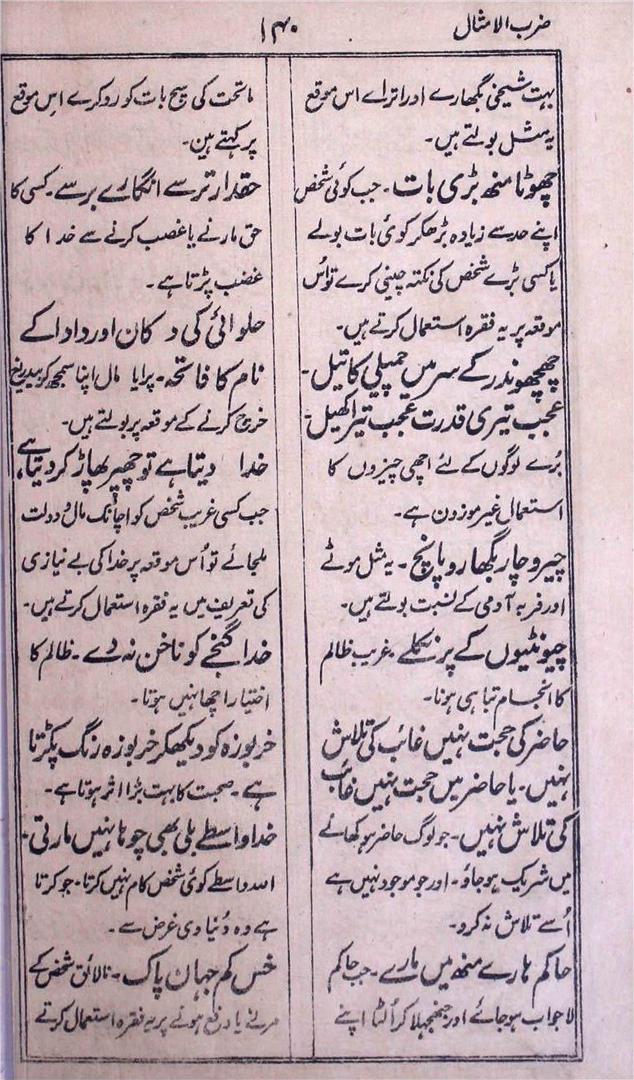 ضرب الامثال
۱۴۰
بہت شیخی بگھارے اور اترائے اس موقع
یہ مثل بولتے ہیں۔
چھوٹا منھ بڑی بات۔ جب کوئی شخص
اپنے حد سے زیادہ بڑھکر کوئی بات بولے
یا کسی بڑے شخص کی نکتہ چینی کرے تو اُس
موقعہ پر یہ فقرہ استعمال کرتے ہیں۔
چھچھوندر کے سر میں چمیلی کا تیل۔
عجب تیری قدرت عجب تیرا کھیل۔
بُرے لوگوں کے لئے اچھی چیزوں کا
استعمال غیر موزون ہے۔
چیرو چار بگھارو پانچ۔ یہ مثل موٹے
اور فربہ آدمی کے نسبت بولتے ہیں۔
چیونٹیوں کے پر نکلے۔ غریب ظالم
کا انجام تباہی ہونا۔
حاضر کی حجت نہیں غائب کی تلاش
نہیں۔ یا حاضر میں حجت نہیں غائب
کی تلاش نہیں۔ جو لوگ حاضر ہو کھانے
میں شریک ہو جاؤ۔ اور جو موجود نہیں ہے
اُسے تلاش نہ کرو۔
حاکم ہارے منھ میں مارے۔ جب حاکم
لاجواب ہو جائے اور جھنجھلا کر اُلٹا اپنے
ماتحت کی سچ بات کو رد کرے اس موقع
پر کہتے ہین۔
حقدار ترسے انگارے برسے۔ کسی کا
حق مارنے یا غصب کرنے سے خدا کا
غضب پڑتا ہے۔
حلوائی کی دکان اور دادا کے
نام کا فاتحہ۔ پرایا مال اپنا سمجھ کر بیدریغ
خرچ کرنے کے موقعہ پر بولتے ہیں۔
خدا دیتا ہے تو چھپر پھاڑ کر دیتا ہے،
جب کسی غریب شخص کو اچانک مال و دولت
ملجائے تو اُس موقعہ پر خدا کی بے نیازی
کی تعریف میں یہ فقرہ استعمال کرتے ہیں۔
خدا گنجے کو ناخن نہ دے۔ ظالم کا
اختیار اچھا نہیں ہوتا۔
خربوزہ کو دیکھکر خربوزہ رنگ پکڑتا
ہے۔ صحبت کا بہت بڑا اثر ہوتا ہے۔
خدا واسطے بلی بھی چوہا نہیں مارتی۔
اللہ واسطے کوئی شخص کام نہیں کرتا۔ جو کرتا
ہے وہ دُنیاوی غرض سے۔
خس کم جہان پاک۔ نالائق شخص کے
مرنے یا دفع ہونے پر یہ فقرہ استعمال کرتے